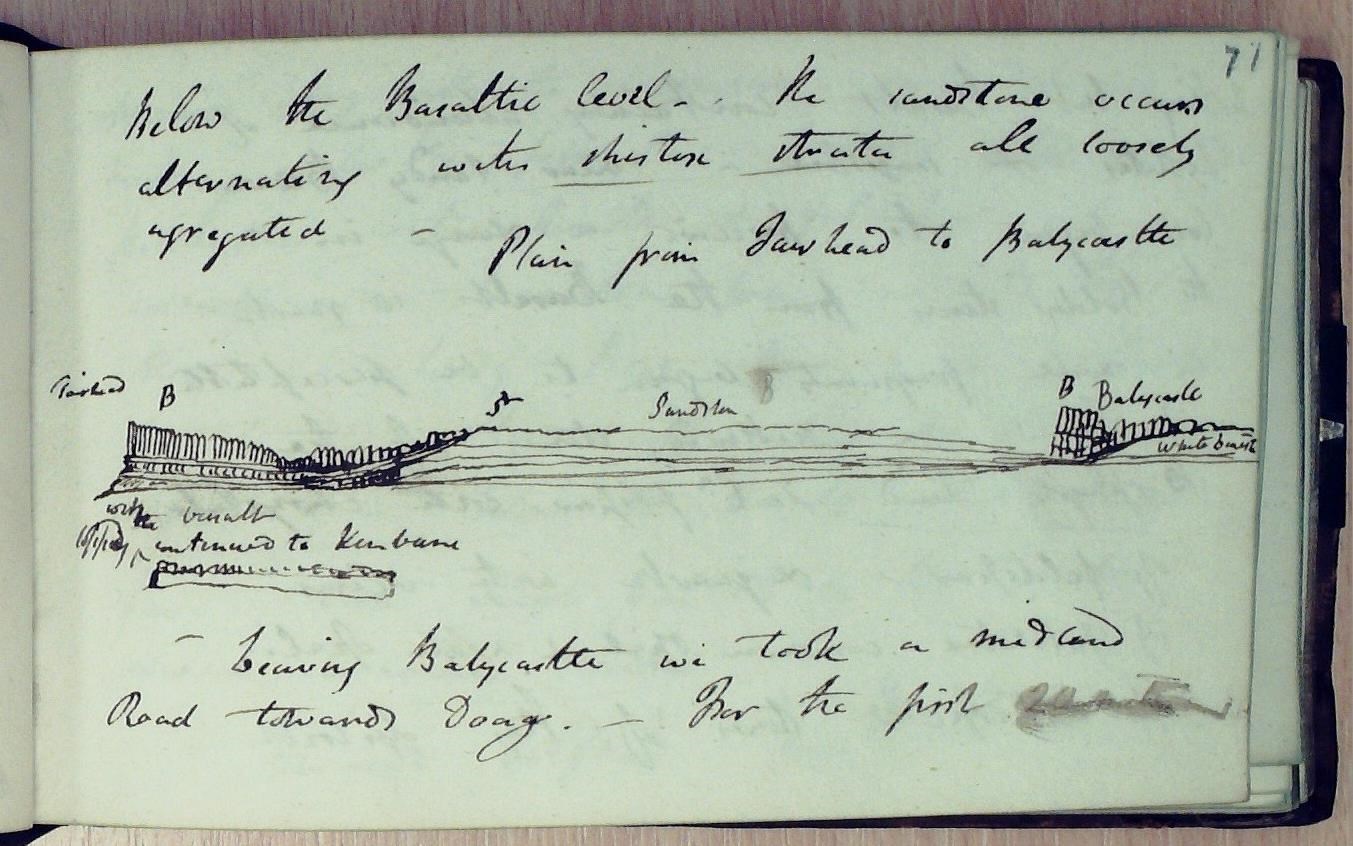 71
Below the Basaltic level - . The sandstone occurs
alternating with shistose strata all loosely
agregated - Plain from Fairhead to Balycastle
Fairhead B Sn Sandston B B Balycastle
White Limest
with the basalt
continued to Kenbane
- Leaving Balycastle we took a midland
Road towards Doag. - For the first